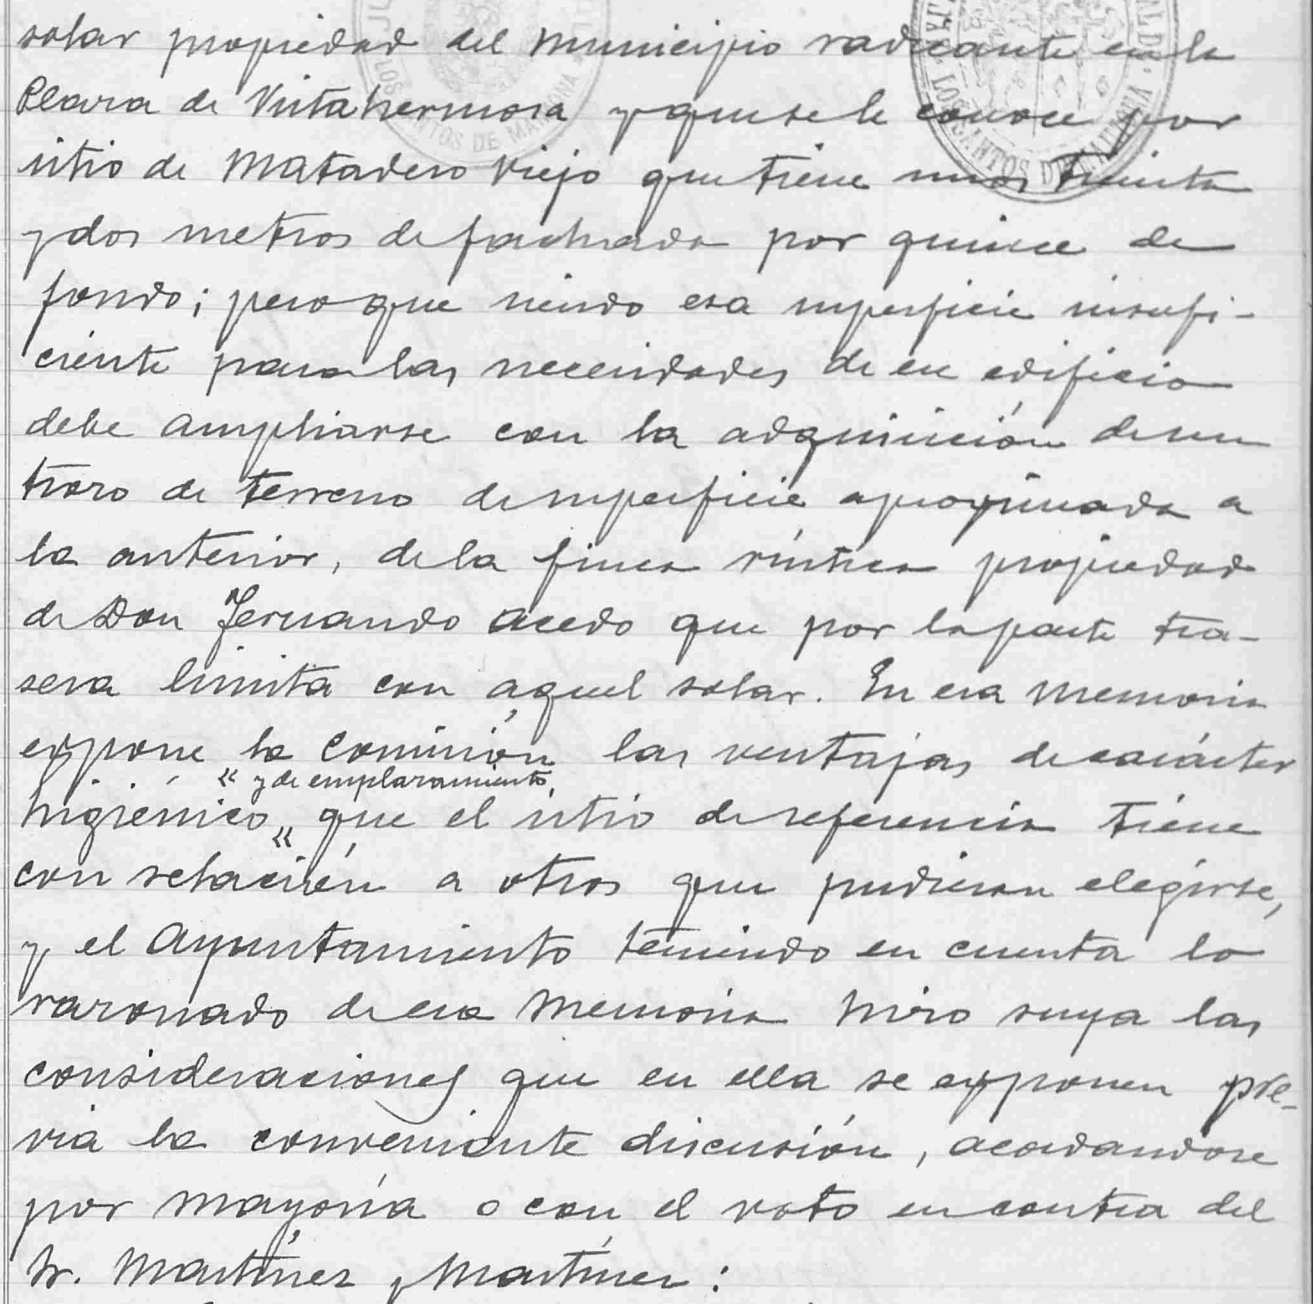 solar propiedad del Municipio radicante en la
Plaza de Vistahermosa y que se le conoce por
sitio de Matadero Viejo que tiene unos treinta
y dos metros de fachada por quince de
fondo; pero que siendo esa superficie insufi-
ciente para las necesidades de ese edificio
debe ampliarse con la adquisición de un
trozo de terreno de superficie aproximada a
la anterior, de la finca rústica propiedad
de Don Fernando Acedo que por la parte tra-
sera limita con aquel solar. En esa Memoria
expone la Comisión las ventajas de carácter
" y de emplazamiento,
higiénico " que el sitio de referencia tiene
con relación a otros que pudieran elegirse,
y el Ayuntamiento teniendo en cuenta lo
razonado de esa Memoria hizo suya las
consideraciones que en ella se exponen pre-
via la conveniente discusión, acordandose
por mayoría o con el voto en contra del
Sr. Martínez y Martínez: